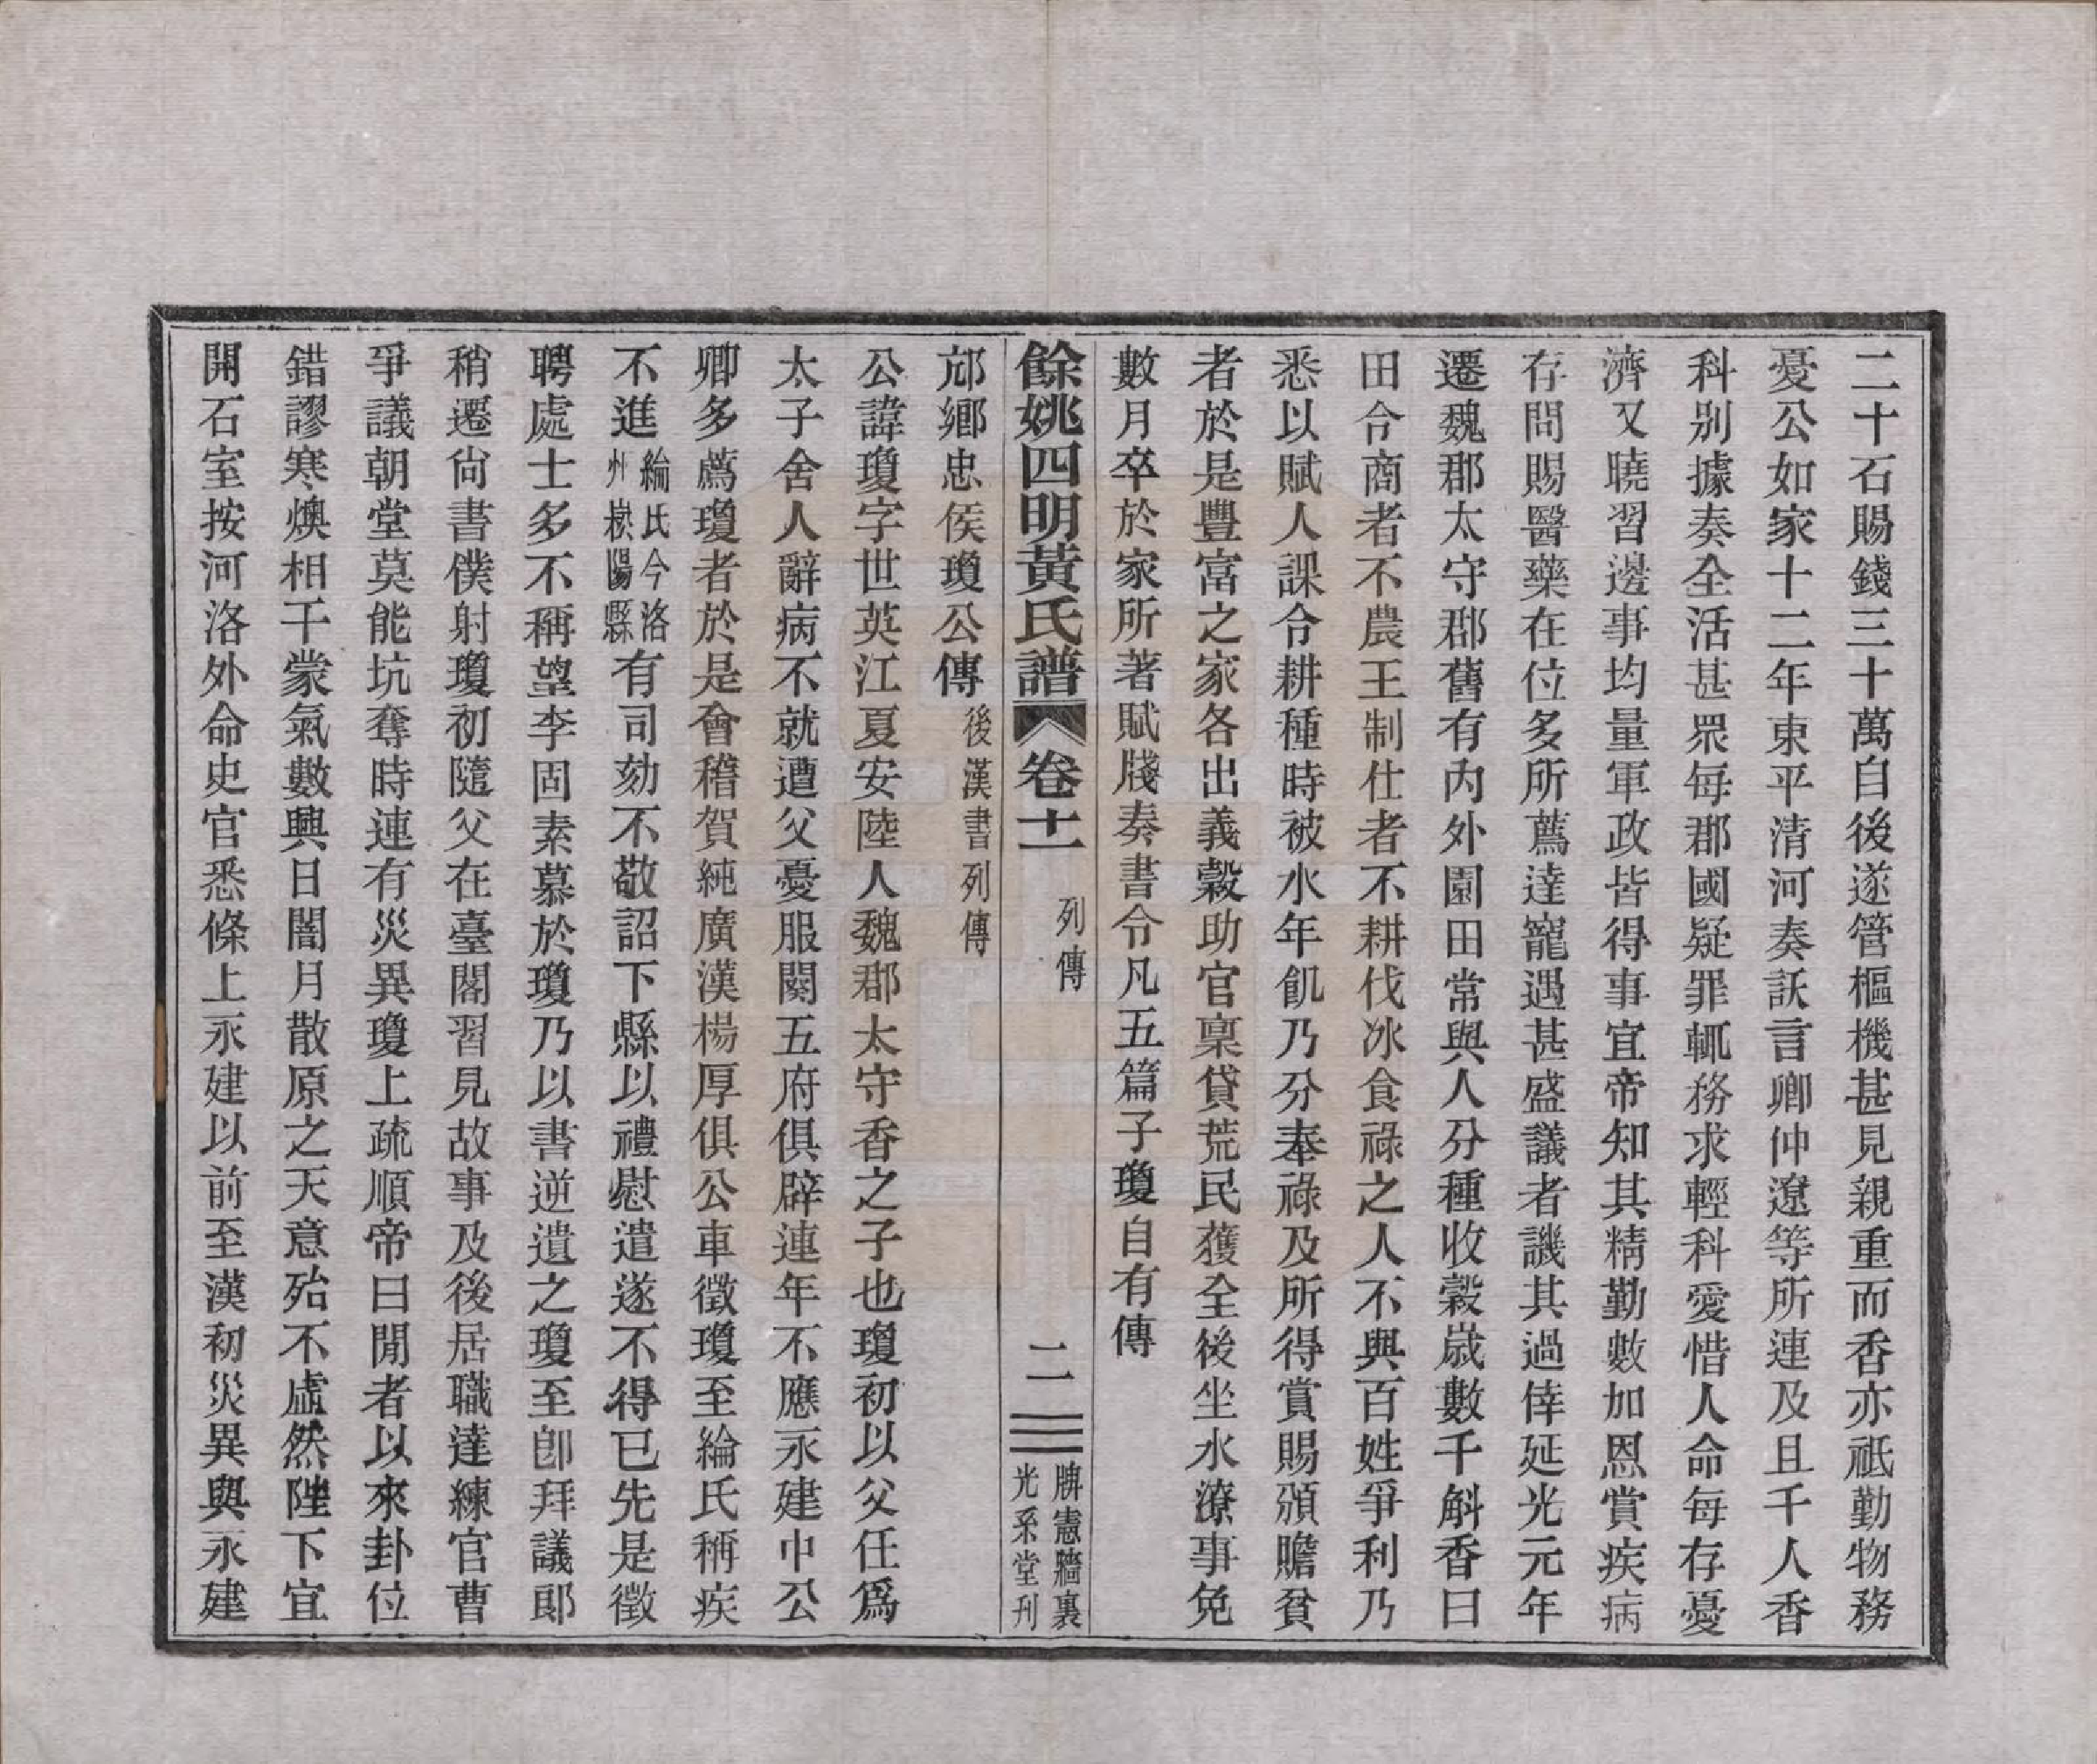 二十石賜錢三十萬自後遂管樞機甚見親重而香亦祗勤物務
憂公如家十二年東平清河奏訞言卿仲遼等所連及且千人香
科别據奏全活甚眾每郡國疑罪輒務求輕科愛惜人命每存憂
濟又曉習邊事均量軍政皆得事宜帝知其精勤數加恩賞疾病
存問賜醫藥在位多所薦達寵遇甚盛議者譏其過倖延光元年
遷魏郡太守郡舊有內外園田常與人分種收穀歲數千斛香曰
田令商者不農王制仕者不耕伐冰食祿之人不與百姓爭利乃
悉以賦人課令耕種時被水年飢乃分奉祿及所得賞賜頒贍貧
者於是豐富之家各出義穀助官稟貸荒民獲全後坐水潦事免
數月卒於家所著賦牋奏書令凡五篇子瓊自有傳
餘姚四明黃氏譜 卷十一 列傳 二 竹橋舊裏 光系堂刊
邟鄉忠侯瓊公傳 後漢書列傳
公諱瓊字世英江夏安陸人魏郡太守香之子也瓊初以父任爲
太子舍人辭病不就遭父憂服闋五府俱辟連年不應永建中公
卿多薦瓊者於是會稽賀純廣漢楊厚俱公車徵瓊至綸氏稱疾
不進綸氏今洛州嵩陽縣有司劾不敬詔下縣以禮慰遣遂不得已先是徵
聘處士多不稱望李固素慕於瓊乃以書逆遺之瓊至卽拜議郎
稍遷尙書僕射瓊初隨父在臺閣習見故事及後居職達練官曹
爭議朝堂莫能坑奪時連有災異瓊上疏順帝曰閒者以來卦位
錯謬寒燠相干蒙氣數興日闇月散原之天意殆不虛然陛下宜
開石室按河洛外命史官悉條上永建以前至漢初災異與永建